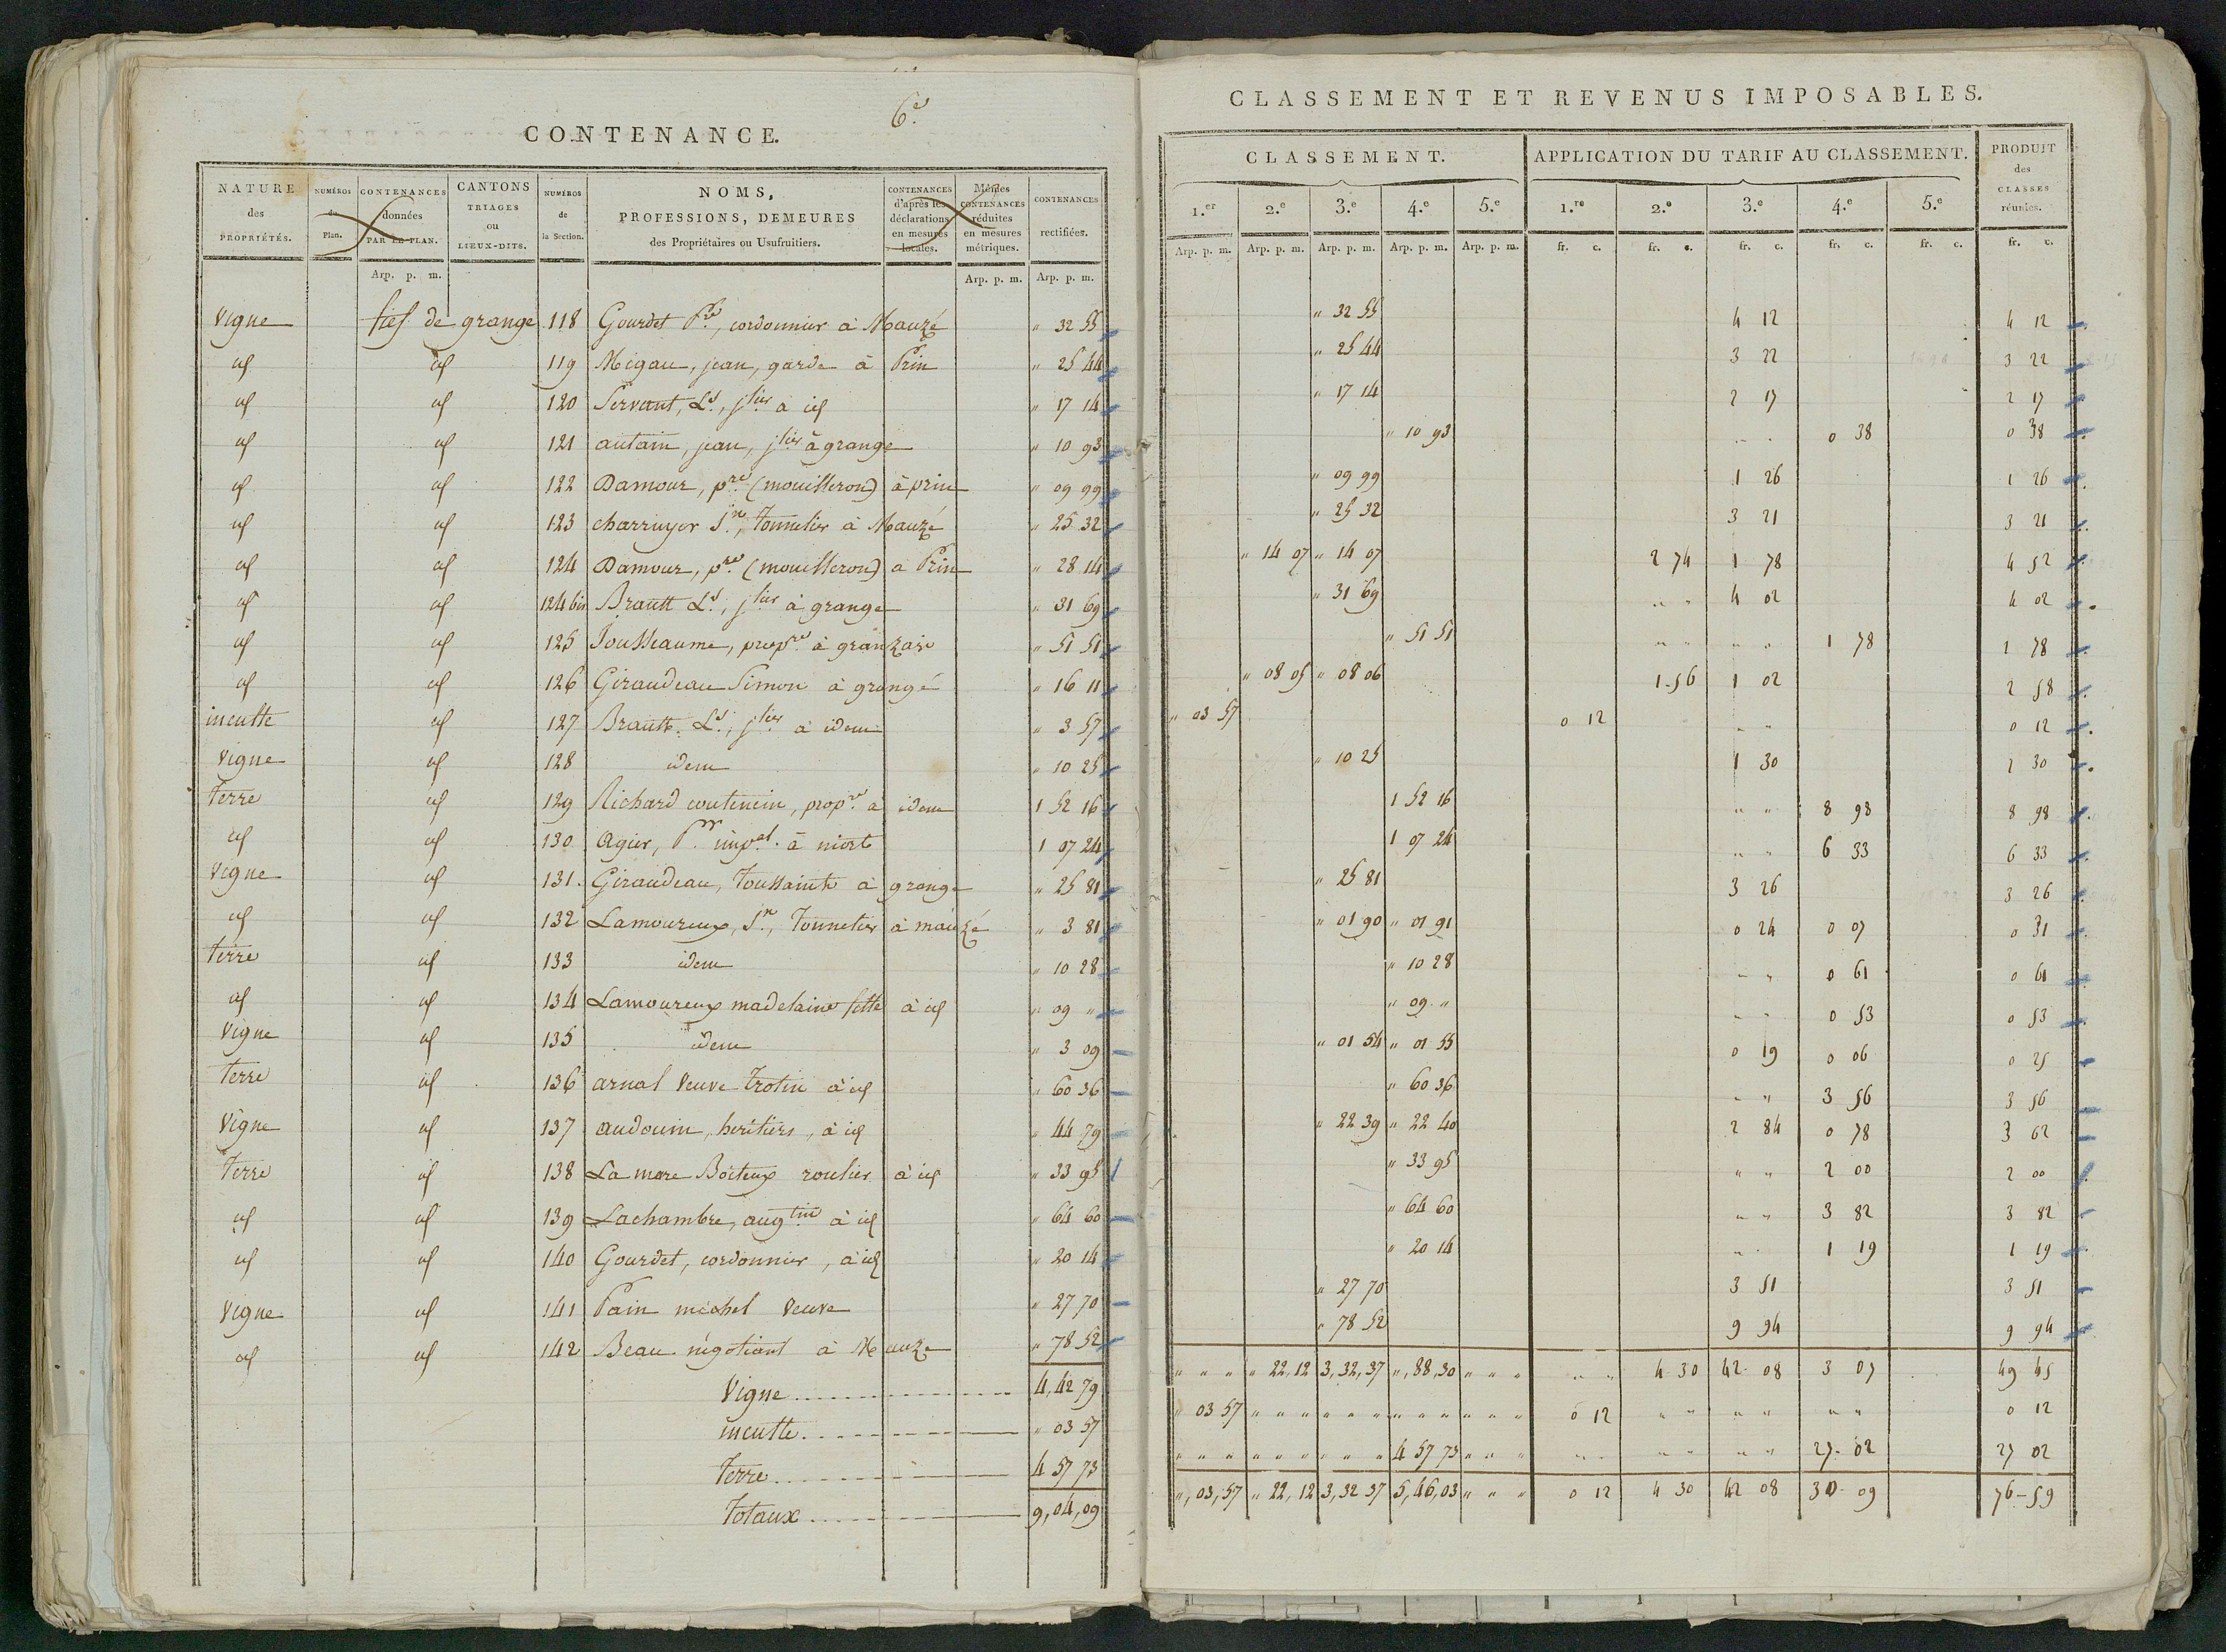 6.e
CONTENANCE.
NATURE des PROPRIÉTÉS. NUMÉROS du Plan. CONTENANCES données PAR LE PLAN. CANTONS TRIAGES ou LIEUX-DITS. NUMÉROS de la Section. NOMS, PROFESSIONS, DEMEURES des Propriétaires ou Usufruitiers. CONTENANCES d'après les déclarations en mesures locales. Mêmes CONTENANCES réduites en mesures métriques. CONTENANCES rectifiées.
Arp. p. m. Arp. p. m. Arp. p. m.
Vigne fief de grange 118 Gourdet P.re, cordonnier à Mauzé " 32 55
id id 119 Mégau, jean, garde à Prin " 25 44
id id 120 Servant, L.s, j.lier à id " 17 14
id id 121 autain, jean, j.lier à grange " 10 93
id id 122 Damour, p.re (mouilleron) à prin " 09 99
id id 123 charruyer J.n, Tonnelier à Mauzé " 25 32
id id 124 Damour, p.re (mouilleron) a Prin " 28 14
id id 124 bis Brault L.s, j.lier à grange " 31 69
id id 125 Jousseaume, prop.re à granzais " 51 51
id id 126 Giraudeau Simon à grange " 16 11
inculte id 127 Brault. L.s, j.lier à idem " 3 57
Vigne id 128 idem " 10 25
Terre id 129 Richard coutincin, prop.re à idem 1 52 16
id id 130 Agier, P.r imp.al. à niort 1 07 24
Vigne id 131. Giraudeau, Toussaint à grange " 25 81
id id 132 Lamoureux, J.n, Tonnelier à mauzé " 3 81
Terre id 133 idem " 10 28
id id 134 Lamoureux madelaine fille à id " 09 "
Vigne id 135 idem " 3 09
Terre id 136 arnal Veuve Trotin à id " 60 36
Vigne id 137 audouin, heritiers, à id " 44 79
Terre id 138 La mare Boiteux roulier à id " 33 95
id id 139 Lachambre, aug.tin à id " 64 60
id id 140 Gourdet, cordonnier, à id " 20 14
Vigne id 141 Pain michel Veuve " 27 70
id id 142 Beau négotiant à Mauze " 78 52
Vigne 4, 42 79
inculte " 03 57
Terre 4 57 73
Totaux 9, 04, 09
CLASSEMENT ET REVENUS IMPOSABLES.
CLASSEMENT. APPLICATION DU TARIF AU CLASSEMENT. PRODUIT des CLASSES réunies.
1.er 2.e 3.e 4.e 5.e 1.re 2.e 3.e 4.e 5.e
Arp. p. m. Arp. p. m. Arp. p. m. Arp. p. m. Arp. p. m. fr. c. fr. c. fr. c. fr. c. fr. c. fr. c.
" 32 55 4 12 4 12
" 25 44 3 22 3 22
" 17 14 2 17 2 17
" 10 93 " " 0 38 0 38
" 09 99 1 26 1 26
" 25 32 3 21 3 21
" 14 07 " 14 07 2 74 1 78 4 52
" 31 69 " " 4 02 4 02
" 51 51 " " " " 1 78 1 78
" 08 05 " 08 06 1-56 1 02 2 58
" 03 57 0 12 " " 0 12
" 10 25 1 30 1 30
1 52 16 " " 8 98 8 98
1 07 24 " " 6 33 6 33
" 25 81 3 26 3 26
" 01 90 " 01 91 0 24 0 07 0 31
" 10 28 " " 0 61 0 61
" 09 " " " 0 53 0 53
" 01 54 " 01 55 0 19 0 06 0 25
" 60 36 " " 3 56 3 56
" 22 39 " 22 40 2 84 0 78 3 62
" 33 95 " " 2 00 2 00
" 64 60 " " 3 82 3 82
" 20 14 " " 1 19 1 19
" 27 70 3 51 3 51
" 78 52 9 94 9 94
" " " " 22, 12 3, 32, 37 ", 88, 30 " " " " " 4-30 42-08 3 07 49 45
" 03 57 " " " " " " " " " " " " 0 12 " " " " " " 0 12
" " " " " " " " " 4 57 73 " " " " " " " " " 27-02 27 02
", 03, 57 " 22, 12 3, 32 37 5, 46, 03 " " " 0 12 4 30 42 08 30-09 76-59